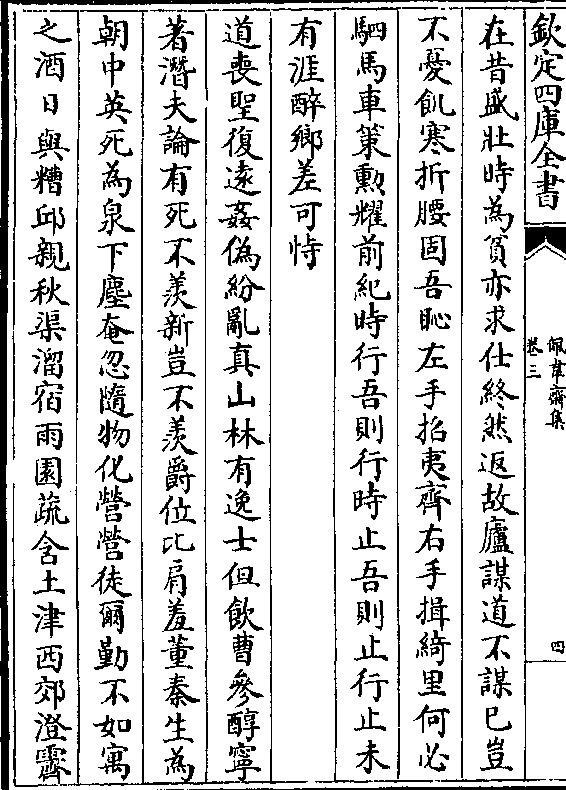 欽定四庫全書
佩韋齋集
卷三
四
在昔盛壯時為貧亦求仕終然返故廬謀道不謀已豈
不憂飢寒折腰固吾恥左手招夷齊右手揖綺里何必
駟馬車策勲耀前紀時行吾則行時止吾則止行止未
有涯醉鄉差可恃
道喪聖復逺姦偽紛亂真山林有逸士但飲曹參醇寧
著潛夫論有死不羨新豈不羨爵位比肩羞董秦生為
朝中英死為泉下塵奄忽隨物化營營徒爾勤不如寓
之酒日與糟邱親秋渠溜宿雨園蔬含土津西郊澄霽